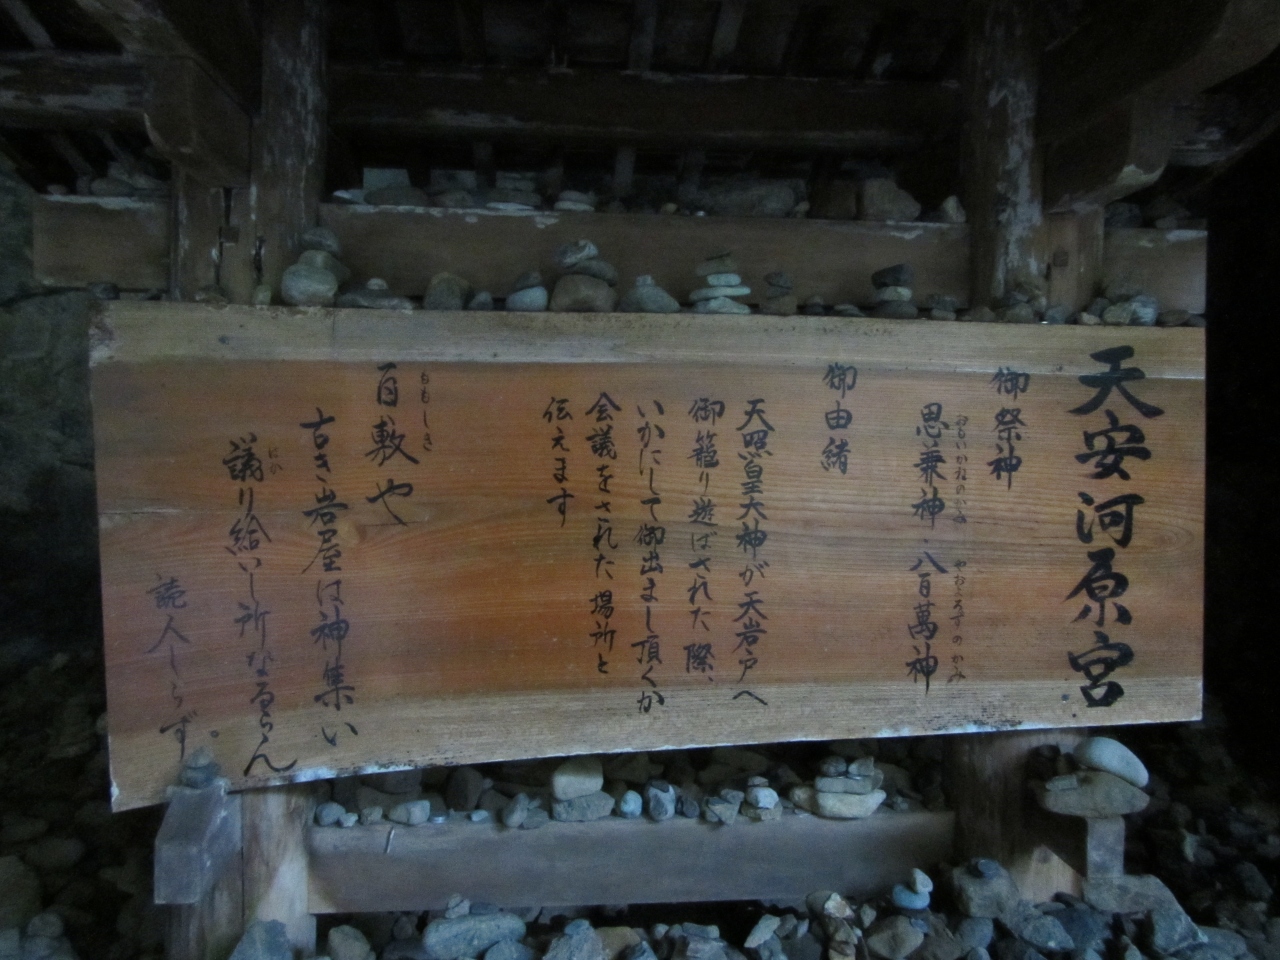 天安河原宮
御祭神
おもいかねのかみ やおよろずのかみ
思兼神・八百萬神
御由緒
天照皇大神が天岩戸へ
御籠り遊ばされた際、
いかにして御出まし頂くか
会議をされた場所と
伝えます
ももしき
百敷や
古き岩屋は神集い
はか
議り給いし所なるらん
読人しらず